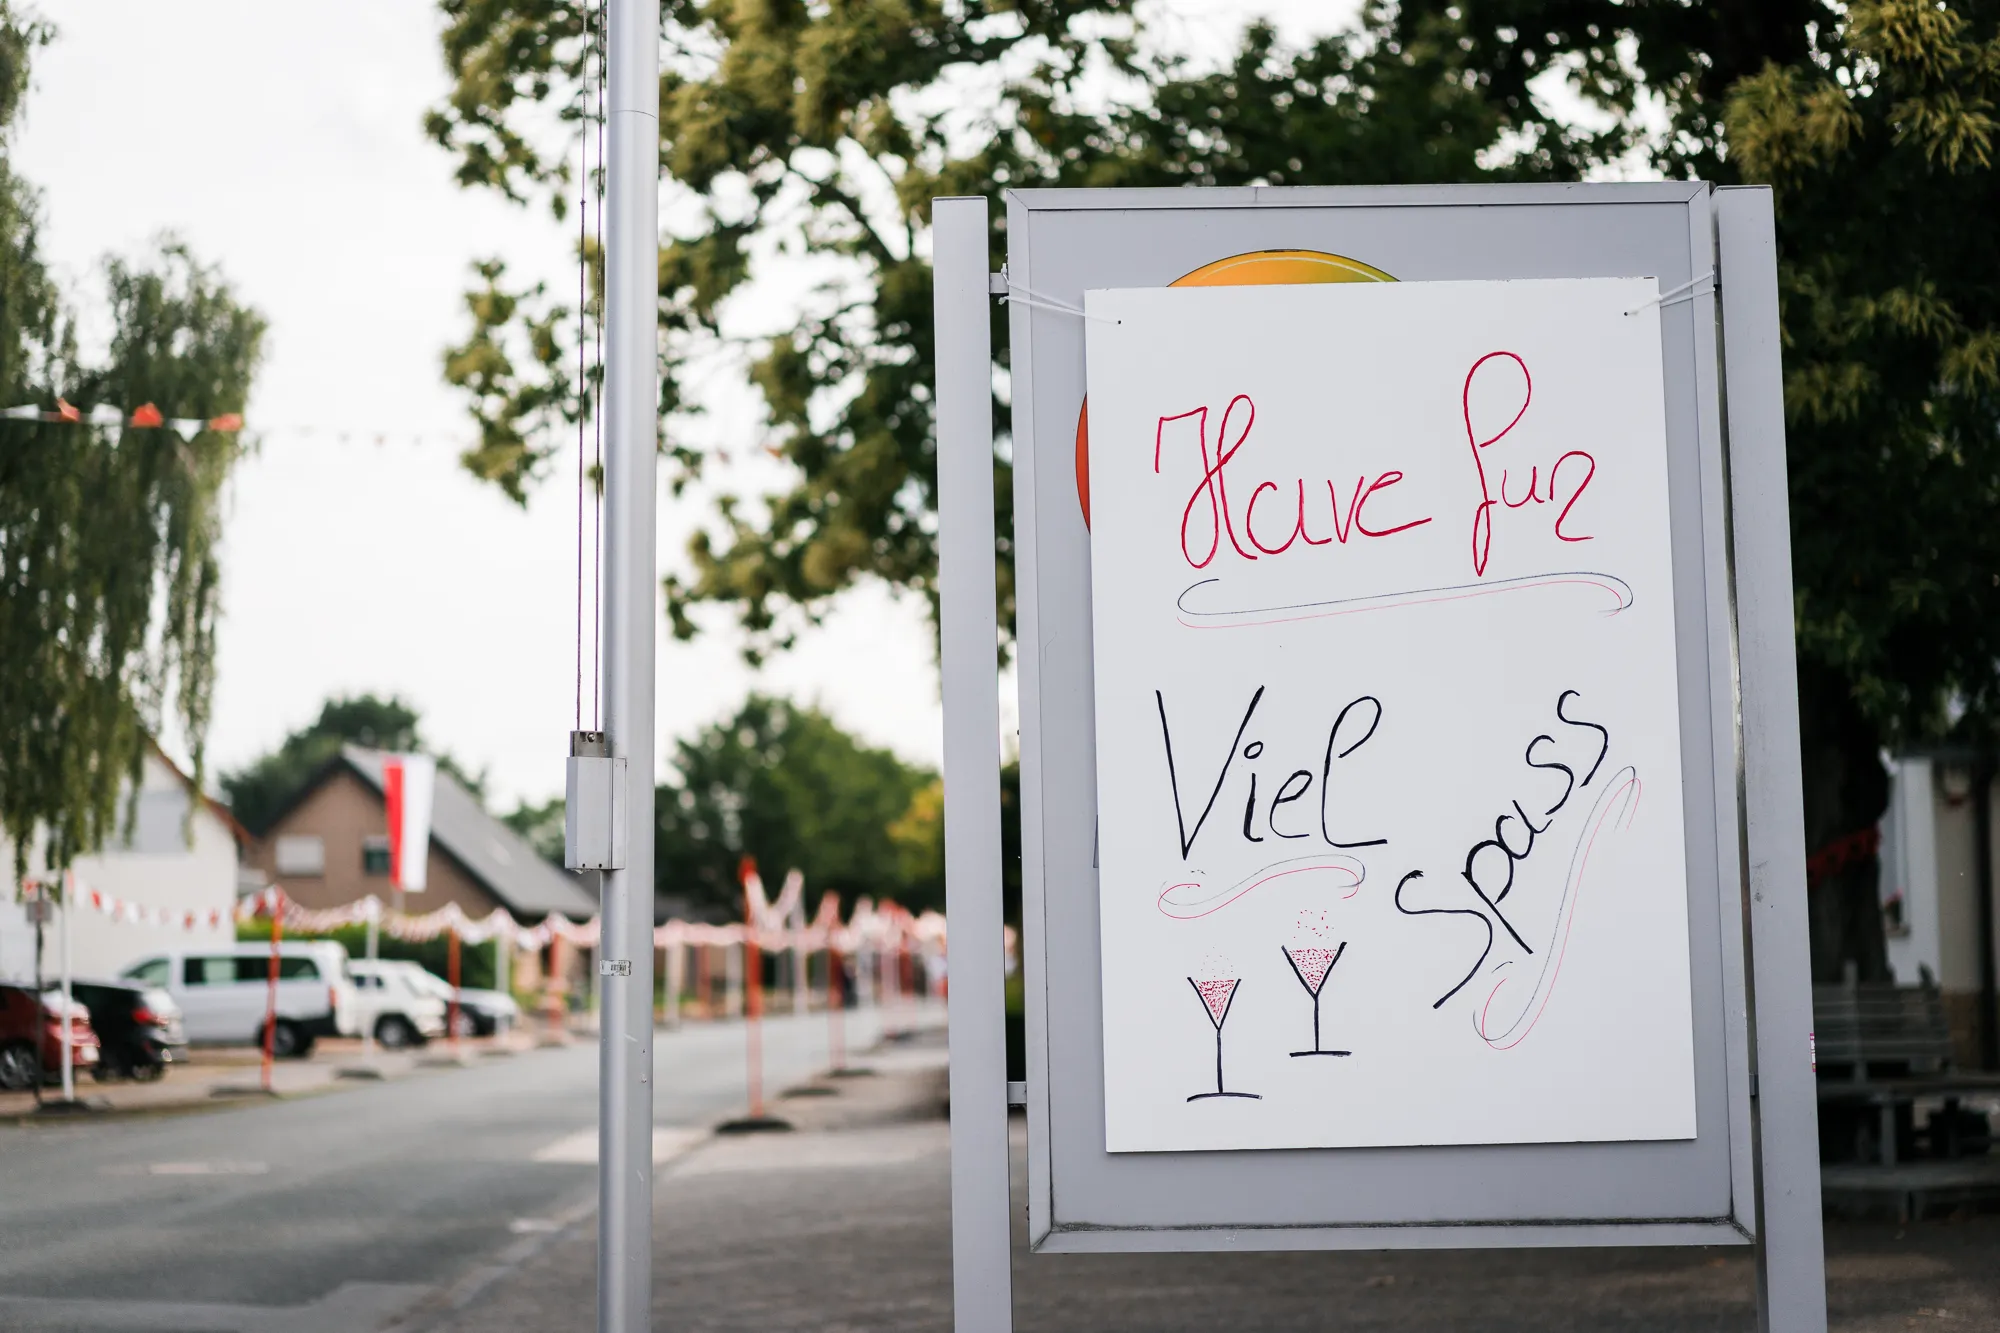 Have fun
Viel Spass